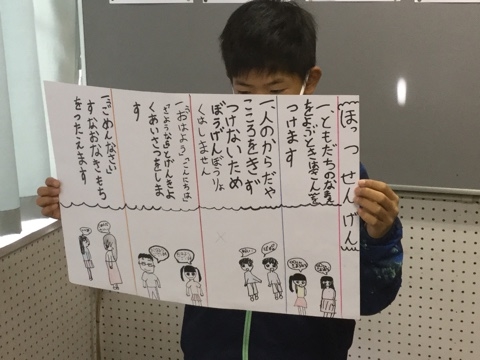 ほっつせんげん
一、ともだちのなまえ
をよぶときはさんを
つけます
一、人のからだや
こころをきず
つけないため
ぼうげんぼうりょ
くはしません
一、おはよう「こんにちは」
「さようなら」とげんきよ
くあいさつをしま
す
一、「ごめんなさい」
すなおなきもち
をつたえます